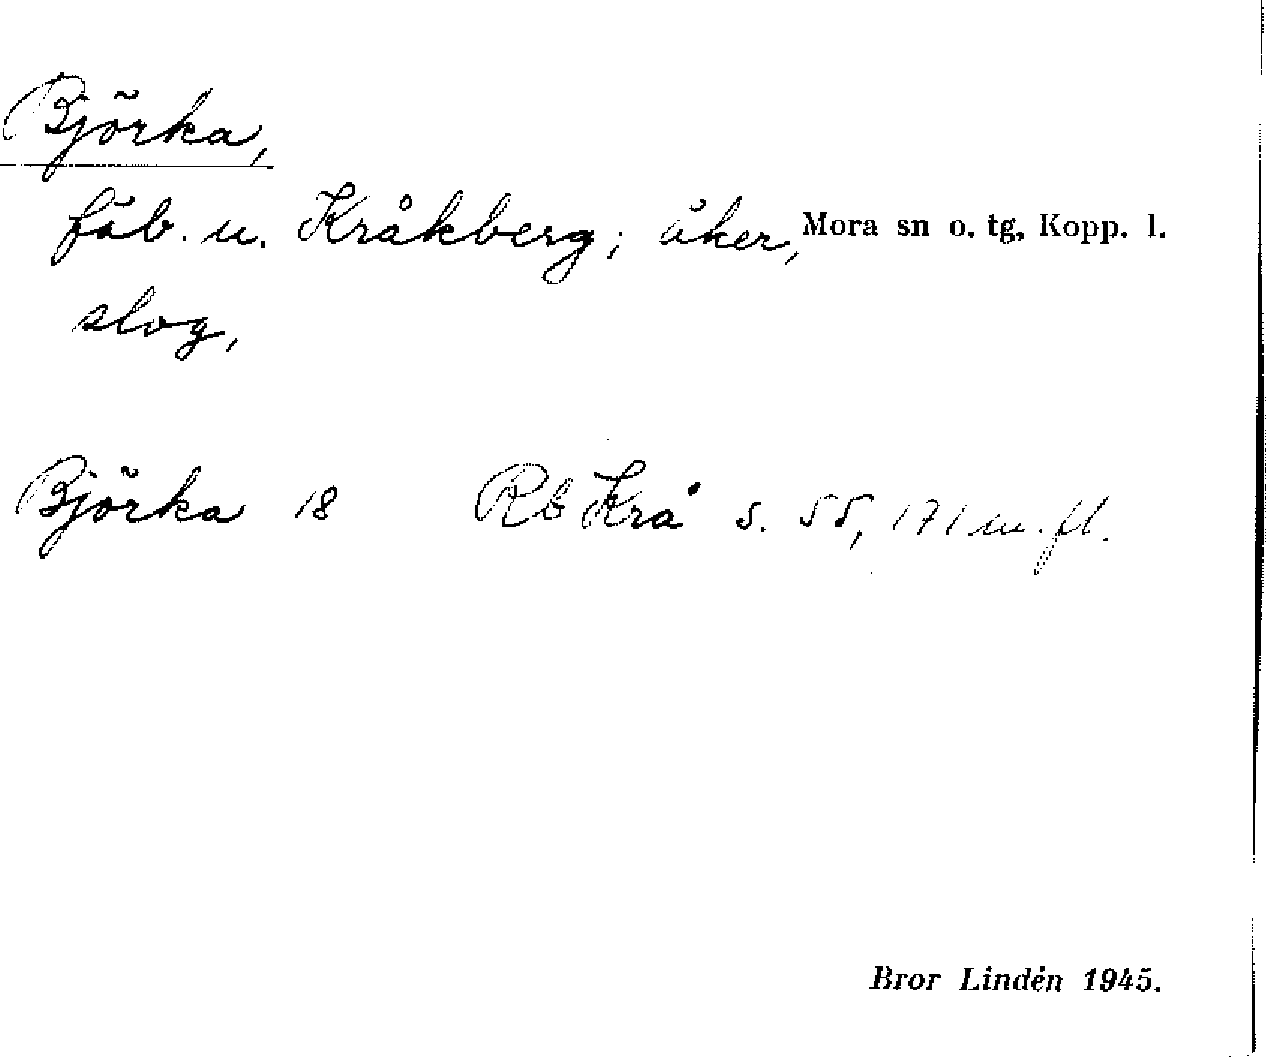 Björka,
fäb. u. Kråkberg; åker, Mora sn o. tg, Kopp. l.
slog,
Björka 18 Rb Krå s. 55, 171 m. fl.
Bror Lindén 1945.